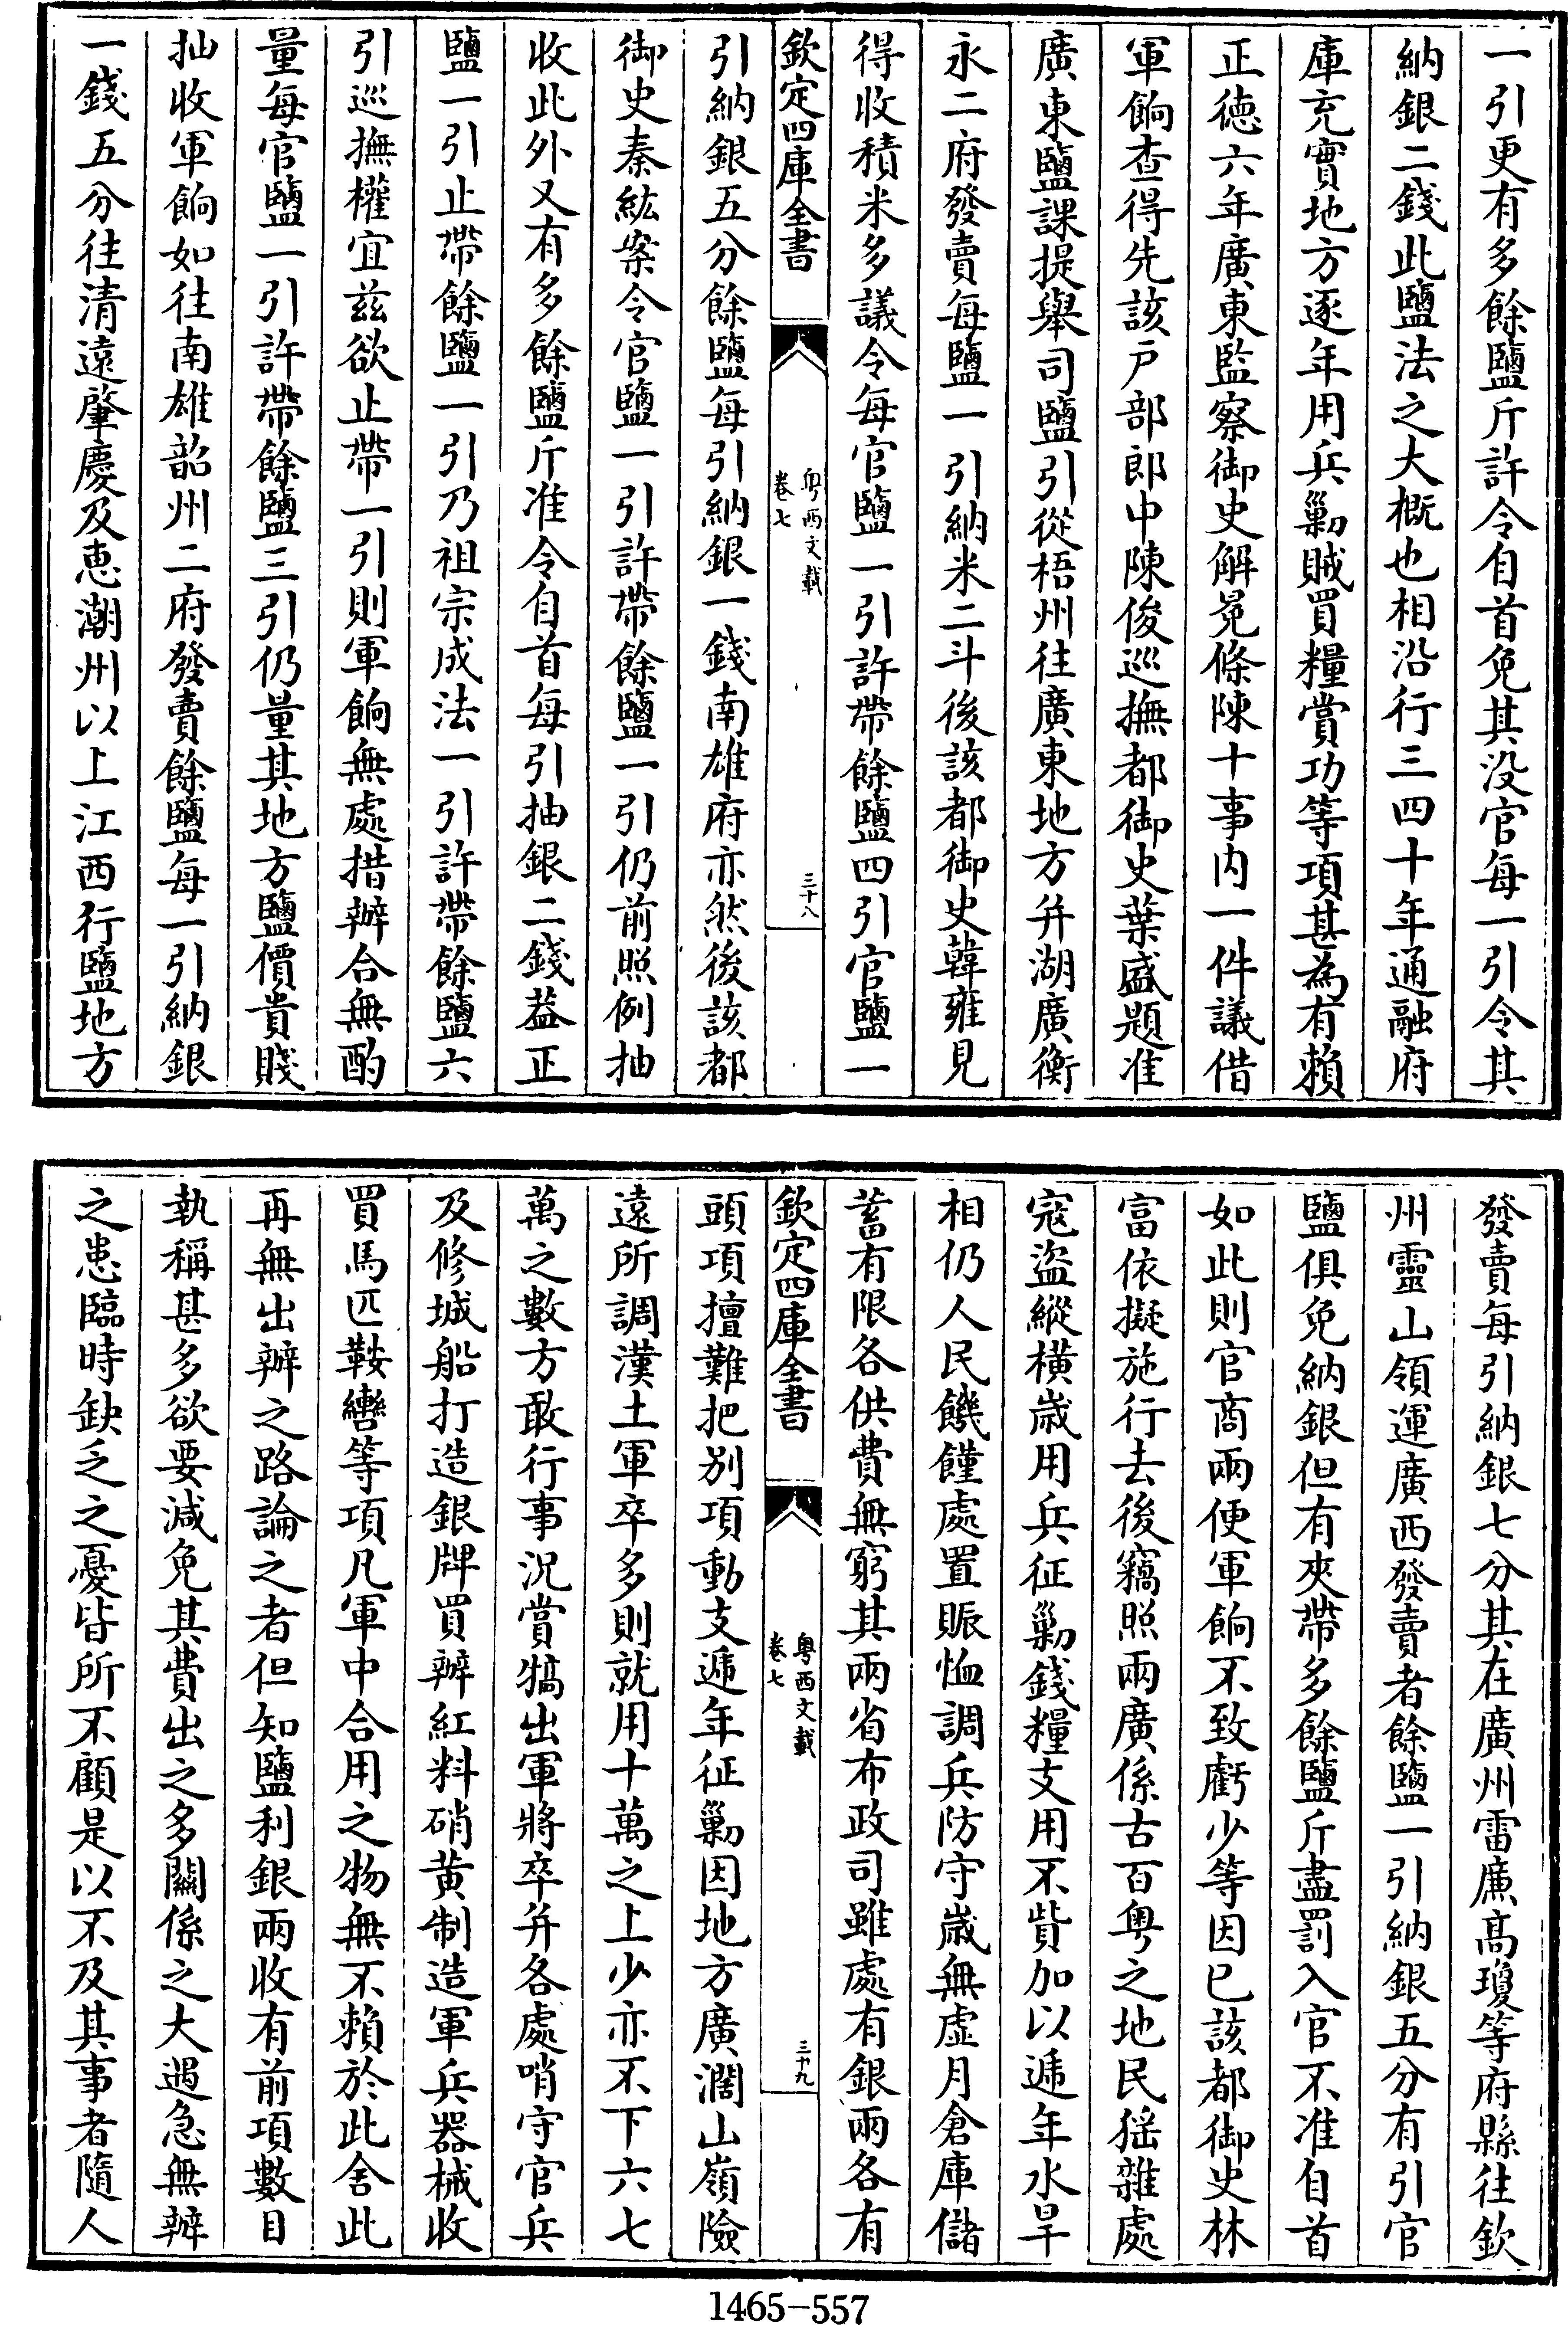 一引更有多餘鹽斤許令自首免其没官每一引令其
納銀二錢此鹽法之大概也相沿行三四十年通融府
庫充實地方逐年用兵勦賊買糧賞功等項甚為有賴
正德六年廣東監察御史解冕條陳十事内一件議借
軍餉查得先該戸部郎中陳俊巡撫都御史葉盛題准
廣東鹽課提舉司鹽引從梧州往廣東地方并湖廣衡
永二府發賣每鹽一引納米二斗後該都御史韓雍見
得收積米多議令每官鹽一引許帶餘鹽四引官鹽一
欽定四庫全書
粤西文載
卷七
三十八
引納銀五分餘鹽每引納銀一錢南雄府亦然後該都
御史秦紘案令官鹽一引許帶餘鹽一引仍前照例抽
收此外又有多餘鹽斤准令自首每引抽銀二錢葢正
鹽一引止帶餘鹽一引乃祖宗成法一引許帶餘鹽六
引巡撫權宜兹欲止帶一引則軍餉無處措辦合無酌
量每官鹽一引許帶餘鹽三引仍量其地方鹽價貴賤
抽收軍餉如往南雄韶州二府發賣餘鹽每一引納銀
一錢五分往清遠肇慶及惠潮州以上江西行鹽地方
發賣每引納銀七分其在廣州雷廉髙瓊等府縣往欽
州靈山領運廣西發賣者餘鹽一引納銀五分有引官
鹽俱免納銀但有夾帶多餘鹽斤盡罰入官不准自首
如此則官商兩便軍餉不致虧少等因已該都御史林
富依擬施行去後竊照兩廣係古百粤之地民猺雜處
寇盜縱横嵗用兵征勦錢糧支用不貲加以遞年水旱
相仍人民饑饉處置賑恤調兵防守嵗無虚月倉庫儲
蓄有限各供費無窮其兩省布政司雖處有銀兩各有
欽定四庫全書
粤西文載
卷七
三十九
頭項擅難把别項動支遞年征勦因地方廣濶山嶺險
遠所調漢土軍卒多則就用十萬之上少亦不下六七
萬之數方敢行事況賞犒出軍將卒并各處哨守官兵
及修城船打造銀牌買辦紅料硝黄制造軍兵器械收
買馬匹鞍轡等項凡軍中合用之物無不賴於此舍此
再無出辦之路論之者但知鹽利銀兩收有前項數目
執稱甚多欲要減免其費出之多關係之大遇急無辦
之患臨時缺乏之憂皆所不顧是以不及其事者隨人
1465-557